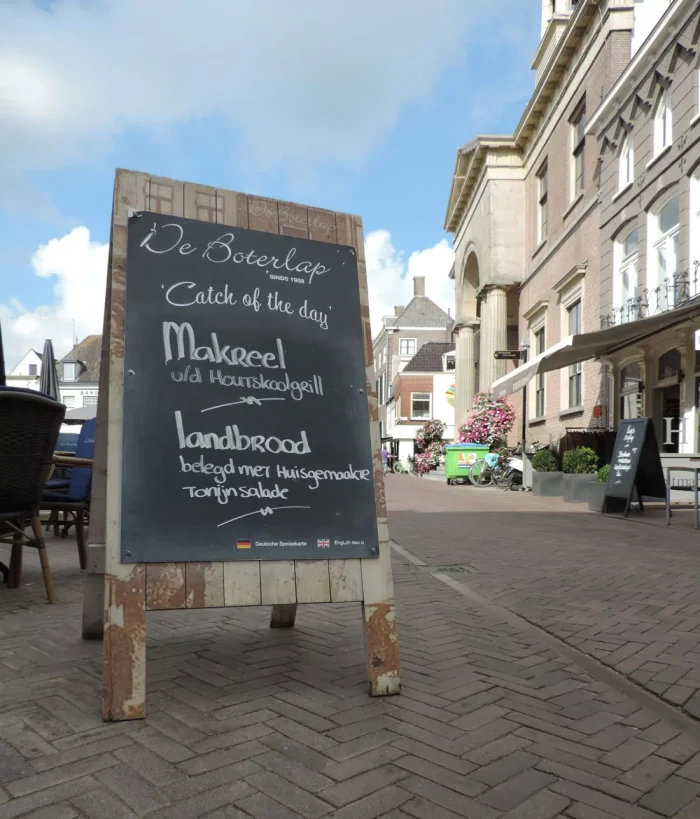 De Boterlap
De Boterlap
SINDS 1958
'Catch of the day'
Makreel
u/d Houtskoolgrill
landbrood
belegd met Huisgemaakte
Tonijn salade
Deutsche Speisekarte
English menu